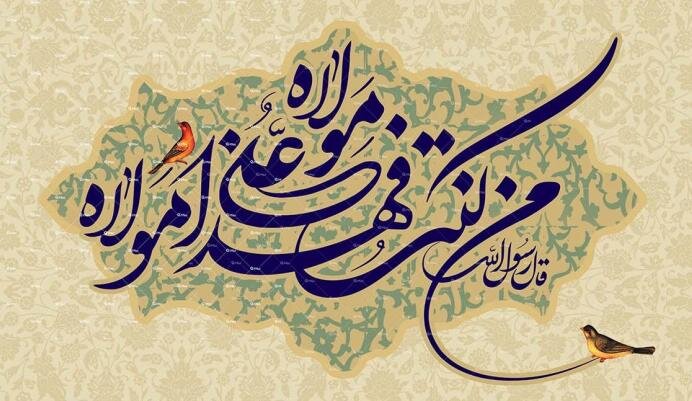 قال رسول الله
من کنت مولاه فهذا علی مولاه